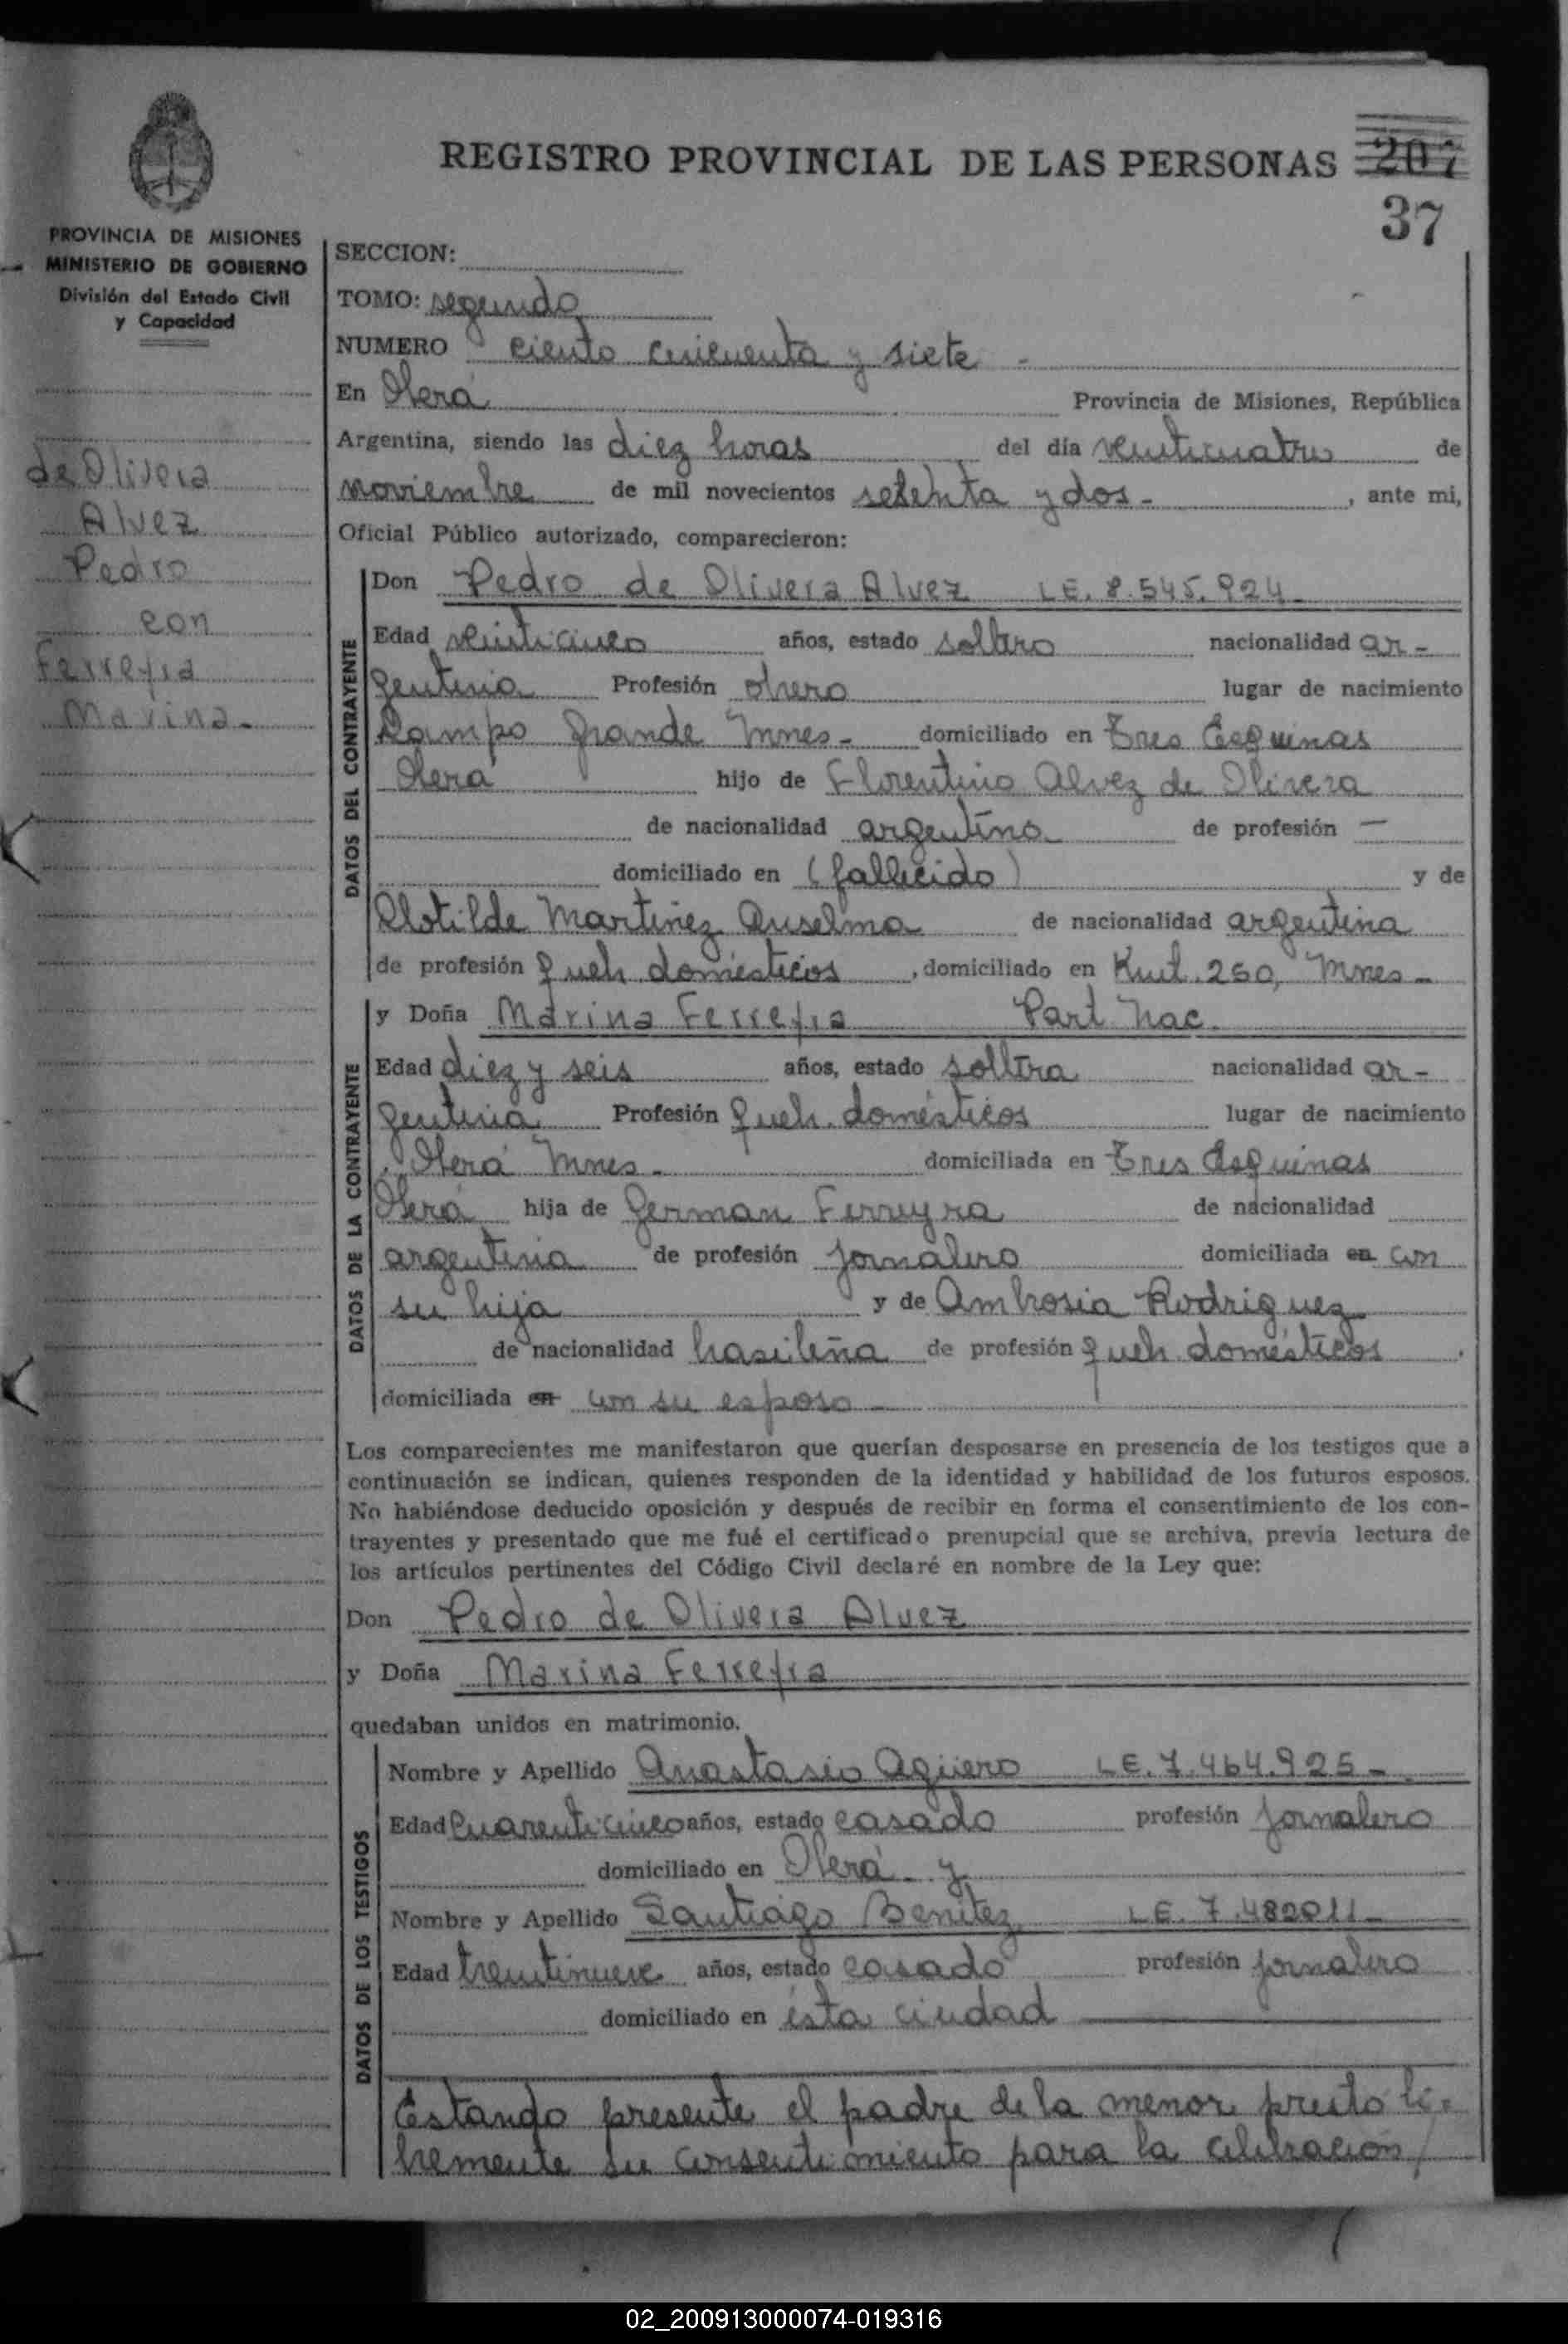 REGISTRO PROVINCIAL DE LAS PERSONAS 207
37
PROVINCIA DE MISIONES
MINISTERIO DE GOBIERNO
División del Estado Civil
y Capacidad
de Olivera
Alvez
Pedro
con
Ferreyra
Marina-
SECCION:
TOMO: segundo
NUMERO ciento cincuenta y siete -
En Oberá Provincia de Misiones, República
Argentina, siendo las diez horas del día veinticuatro de
noviembre de mil novecientos setenta y dos- , ante mi,
Oficial Público autorizado, comparecieron:
DATOS DEL CONTRAYENTE
Don Pedro de Olivera Alvez LE. 8.545.924-
Edad veinticinco años, estado soltero nacionalidad ar-
gentina Profesión obrero lugar de nacimiento
Campo Grande Mnes- domiciliado en Tres Esquinas
Oberá hijo de Florentino Alvez de Olivera
de nacionalidad argentino de profesión —
domiciliado en (fallecido) y de
Clotilde Martinez Anselma de nacionalidad argentina
de profesión queh. domésticos , domiciliado en Kmt. 260, Mnes-
DATOS DE LA CONTRAYENTE
y Doña Marina Ferreyra Part. Nac.
Edad diez y seis años, estado soltera nacionalidad ar-
gentina Profesión queh. domésticos lugar de nacimiento
Oberá Mnes- domiciliada en Tres Esquinas
Oberá hija de German Ferreyra de nacionalidad
argentina de profesión jornalero domiciliada en con
su hija y de Ambrosia Rodriguez
de nacionalidad brasileña de profesión queh domésticos .
domiciliada en con su esposo -
Los comparecientes me manifestaron que querían desposarse en presencia de los testigos que a
continuación se indican, quienes responden de la identidad y habilidad de los futuros esposos.
No habiéndose deducido oposición y después de recibir en forma el consentimiento de los con-
trayentes y presentado que me fué el certificado prenupcial que se archiva, previa lectura de
los artículos pertinentes del Código Civil declaré en nombre de la Ley que:
Don Pedro de Olivera Alvez
y Doña Marina Ferreyra
quedaban unidos en matrimonio.
DATOS DE LOS TESTIGOS
Nombre y Apellido Anastasio Agüero LE. 7.464.925-
Edad Cuarenticinco años, estado casado profesión jornalero
domiciliado en Oberá- y
Nombre y Apellido Santiago Benítez LE. 7.482011-
Edad treintinueve años, estado casado profesión jornalero
domiciliado en ésta ciudad
Estando presente el padre de la menor presto li-
bremente su consentimiento para la celebracion/
02_200913000074-019316